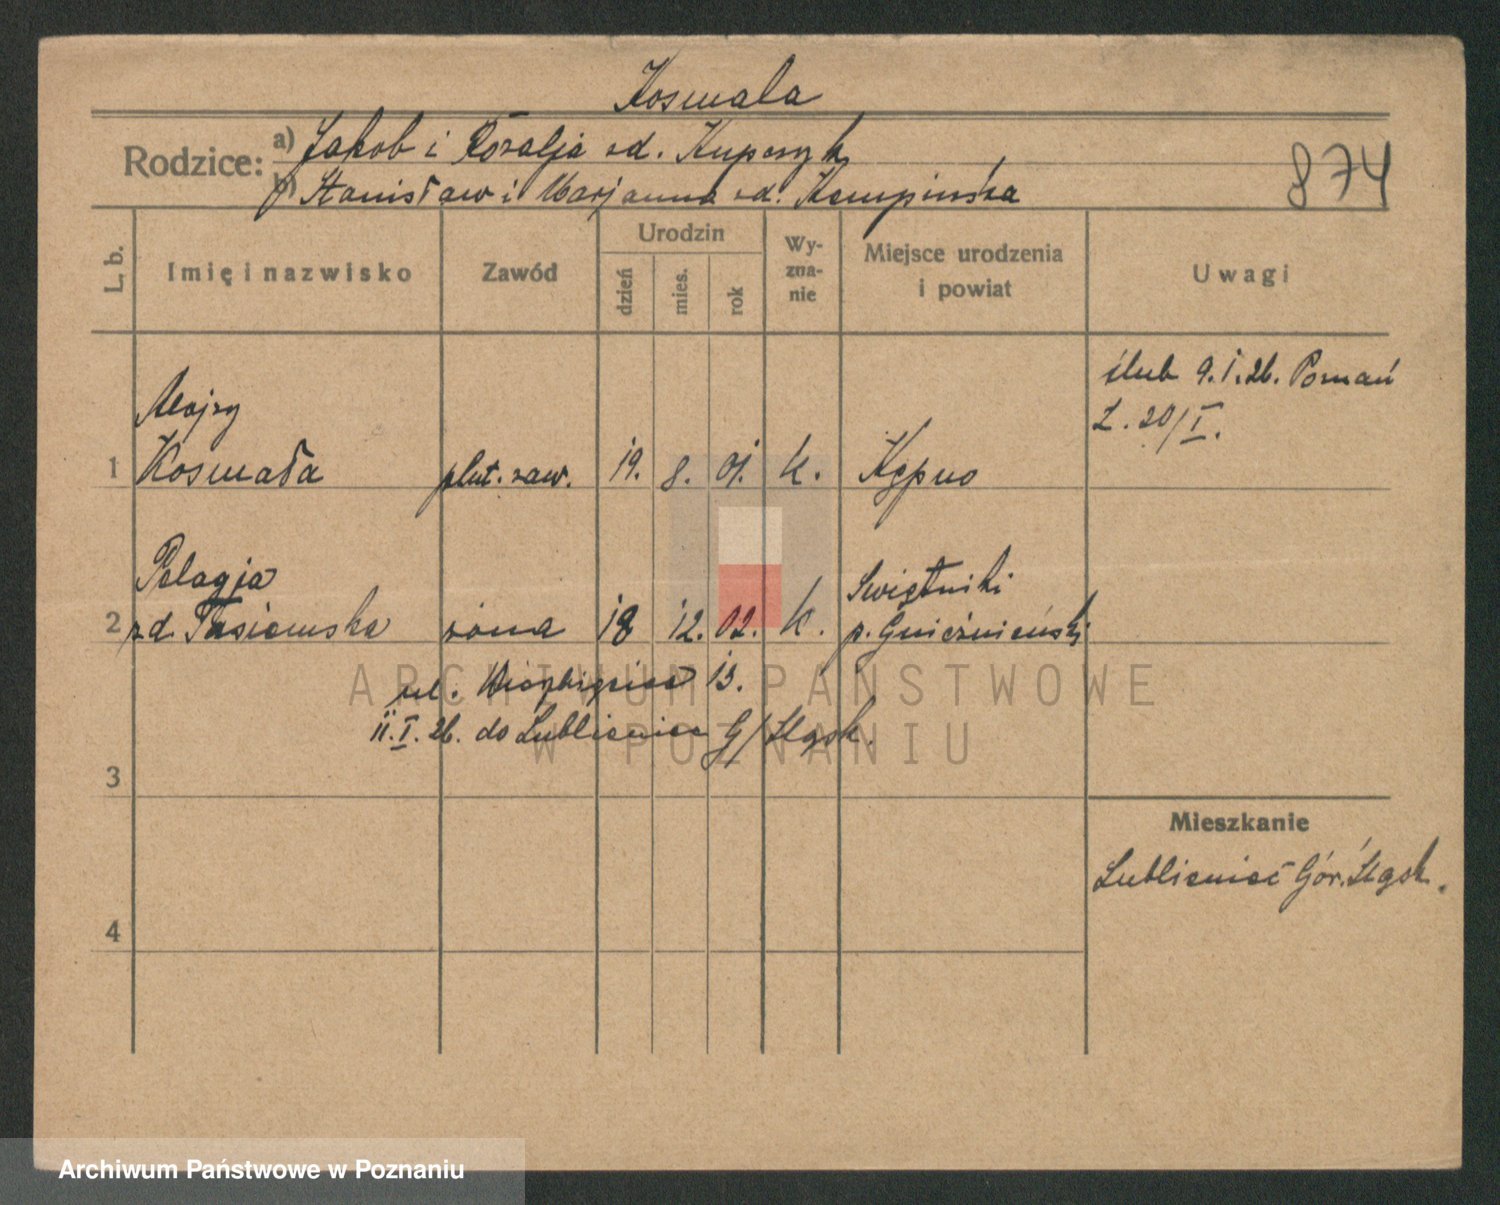 Kosmala
Rodzice: a) Jakob i Rozalja zd. Kupczyk
b) Stanisław i Marjanna zd. Kempińska
874
L. b. Imię i nazwisko Zawód Urodzin dzień mies. rok Wy-zna-nie Miejsce urodzenia i powiat Uwagi
ślub 9.I.26. Poznań
L. 20/I.
Alojzy
1 Kosmała plut. zaw. 19. 8. 01. k. Kępno
Pelagja Swiętniki
2 zd. Tasiemska żona 18 12. 02. k. p. Gnieźnieński
ul. 13.
11.I.26. do Lublieniec G/Śląsk.
3
Mieszkanie
Lublieniec Gór. Śląsk.
4
ARCHIWUM PAŃSTWOWE
W POZNANIU
Archiwum Państwowe w Poznaniu